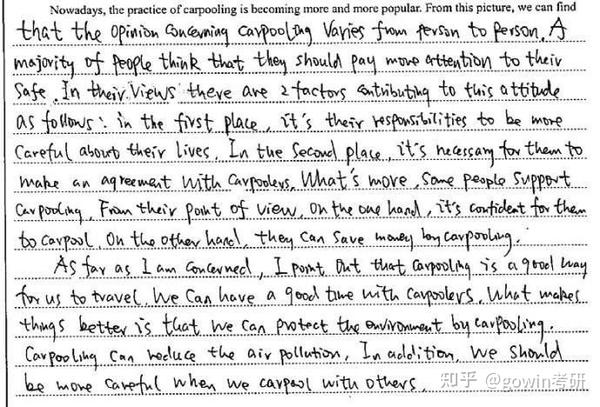 Nowadays, the practice of carpooling is becoming more and more popular. From this picture, we can find
that the opinion concerning carpooling varies from person to person. A
majority of people think that they should pay more attention to their
safe. In their views there are 2 factors contributing to this attitude
as follows: in the first place, it's their responsibilities to be more
careful about their lives. In the second place, it's necessary for them to
make an agreement with carpoolers. What's more, some people support
carpooling. From their point of view, on the one hand, it's confident for them
to carpool. On the other hand, they can save money by carpooling.
As far as I am concerned, I point out that carpooling is a good way
for us to travel. We can have a good time with carpoolers. What makes
things better is that we can protect the environment by carpooling.
Carpooling can reduce the air pollution. In addition, we should
be more careful when we carpool with others.
知乎 @gowin考研